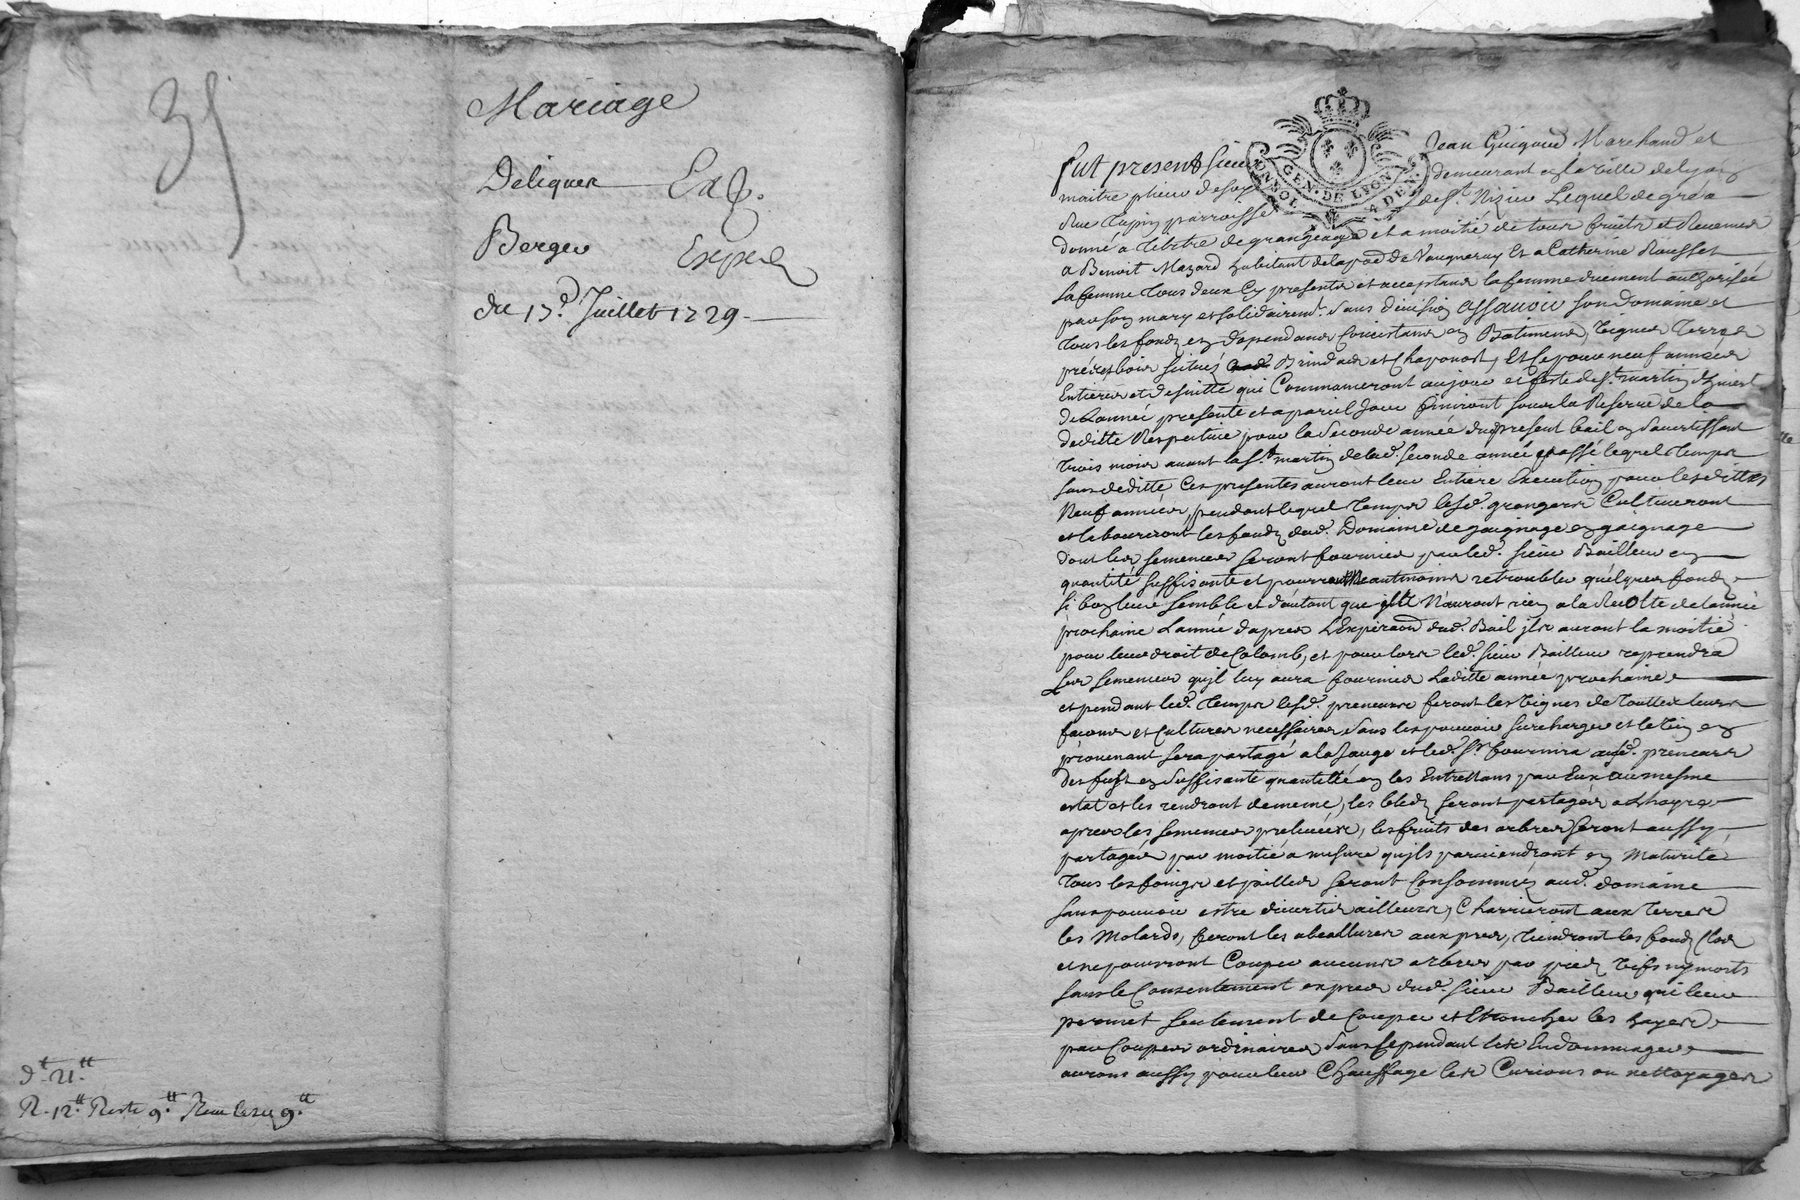 35
Mariage
Deliquer Exp.
Berger Exped
du 17d. Juillet 1729
dt. 21tt
R. 12tt Reste 9tt
GEN. DE LYON
Jean Guigoud Marchand et
fut present sieur
demeurant en la ville de Lyon
maitre plieur de soy
Rue Tupin parroisse de St. Nizier Lequel de gré a
donné a titre de grangeage et a moitié de tous fruits et Revenus
a Benoit Mazard habitant de la de Vaugneray Et a Catherine Rousset
sa femme tous deux Cy presents et acceptans la femme duement authorisée
par son mary et solidairemt. sans division assavoir son Domaine et
tous les fonds en dependans Concistans en Batiments, vignes Terres
prés et bois situés Brindas et Chaponost, Et Ce pour neuf années
Entieres et de suitte qui Commanceront au jour et feste de St. martin d'hiver
de Lannée presente et a pareil Jour finiront sous la Reserve de la
deditte Respective pour la Seconde année du present bail en s'avertissant
trois mois avant la St. martin de lad. seconde année passé lequel Temps
sans deditte Ces presentes auront leur Entiere Execution pour lesdittes
Neuf années, pendant lequel Temps lesd. grangers Cultiveront
et laboureront les fonds dud. Domaine de gaignage en gaignage
dont les semences seront fournies par led. sieur Bailleur en
quantité suffisante et pourront neantmoins retroubler quelques fonds
si bon leur semble et d'autant que N'auront rien a la Recolte de lannée
prochaine Lannée d'apres L'Expiraon dud. Bail jls auront la moitié
pour leur droit de Colomb, et pour lors led. sieur Bailleur reprendra
les semences qu'jl luy aura fournies Laditte année prochaine
et pendant led. temps lesd. preneurs feront les vignes de toutes leurs
façons et Cultures necessaires sans les pouvoir surcharger et le vin en
provenant sera partagé a la Jauge et led. Sr. fournira auxd. preneurs
des fust en suffisante quantitté en les Entrettans par Eux au mesme
estat et les rendront de meme, les bleds seront partagés a Lhayre
apres les semences prelevées, les fruits des arbres seront aussy
partagés par moitié a mesure qu'jls parviendront en maturité
tous les foings et pailles seront Consommés aud. domaine
sans pouvoir estre divertis ailleurs, Charrieront aux terres
les Molards, feront les abeallures aux pres, tiendront les fonds Clos
et ne pourront Couper aucuns arbres par pieds vifs ny morts
sans le Consentement expres dud. sieur Bailleur qui leur
permet seulement de Couper et Etroncher les hayes
par Coupes ordinaires sans Cependant les Endommager
aurons aussy pour leur Chauffage les Curions ou nettoyages